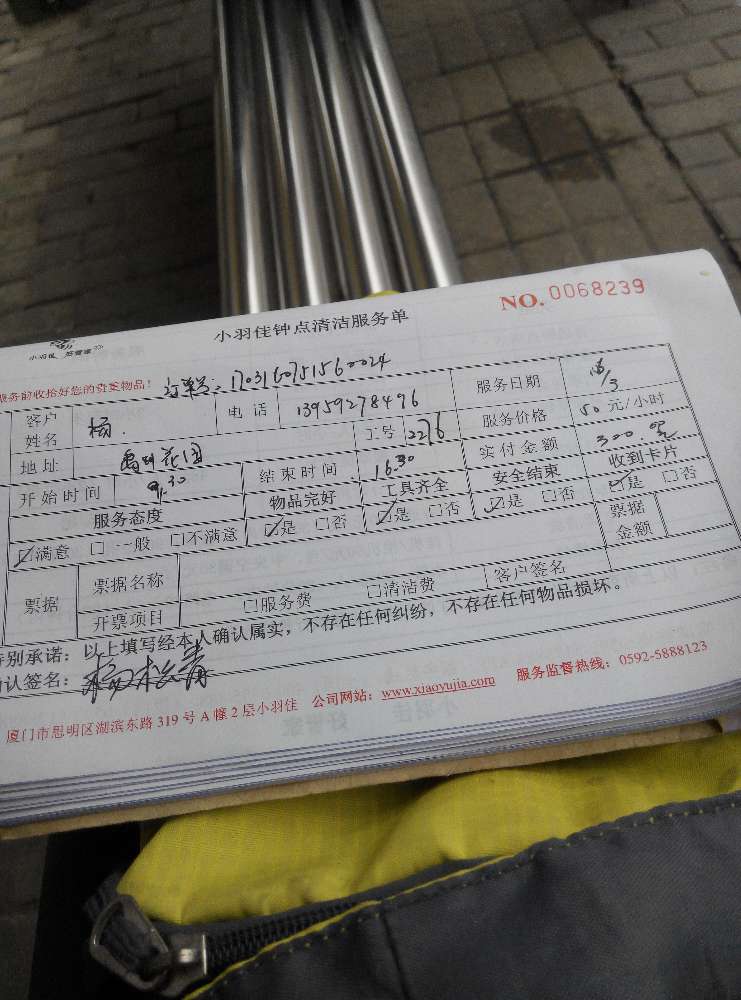 NO. 0068239
小羽佳 好管家
小羽佳钟点清洁服务单
服务前收拾好您的贵重物品！ 订单号：1703160751560024
客户姓名 杨 电话 13959278496 服务日期 16/3
地址 禹州花园 工号 2276 服务价格 50元/小时
开始时间 9.30 结束时间 16.30 实付金额 300.
服务态度 物品完好 工具齐全 安全结束 收到卡片
☑满意 □一般 □不满意 ☑是 □否 ☑是 □否 ☑是 □否 ☑是 □否
票据 票据名称 票据金额
开票项目 □服务费 □清洁费 客户签名
特别承诺：以上填写经本人确认属实，不存在任何纠纷，不存在任何物品损坏。
确认签名：
厦门市思明区湖滨东路319号A幢2层小羽佳 公司网站：www.xiaoyujia.com 服务监督热线：0592-5888123